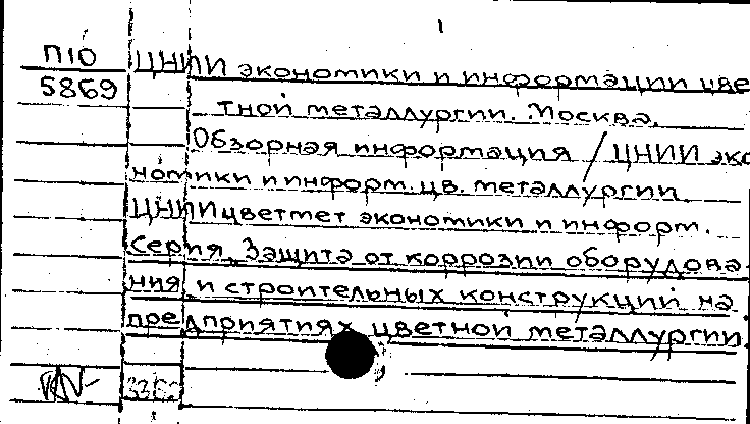 1
П10
5869
ЦНИИ экономики и информации цве
тной металлургии. Москва.
Обзорная информация / ЦНИИ эко
номики и информ. цв. металлургии.
ЦНИИцветмет экономики и информ.
Серия. Защита от коррозии оборудова
ния и строительных конструкций на
предприятиях цветной металлургии.